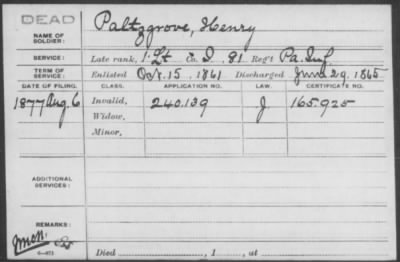 DEAD
NAME OF SOLDIER: Paltzgrove, Henry
SERVICE: Late rank, 1 Lt Co. I, 81 Reg't Pa. Inf
TERM OF SERVICE: Enlisted Oct. 15, 1861 Discharged June 29, 1865
DATE OF FILING. CLASS. APPLICATION NO. LAW. CERTIFICATE NO.
1877 Aug. 6 Invalid, 240.139 J. 165.925
Widow,
Minor,
ADDITIONAL SERVICES:
REMARKS:
6—071
Died , 1 , at